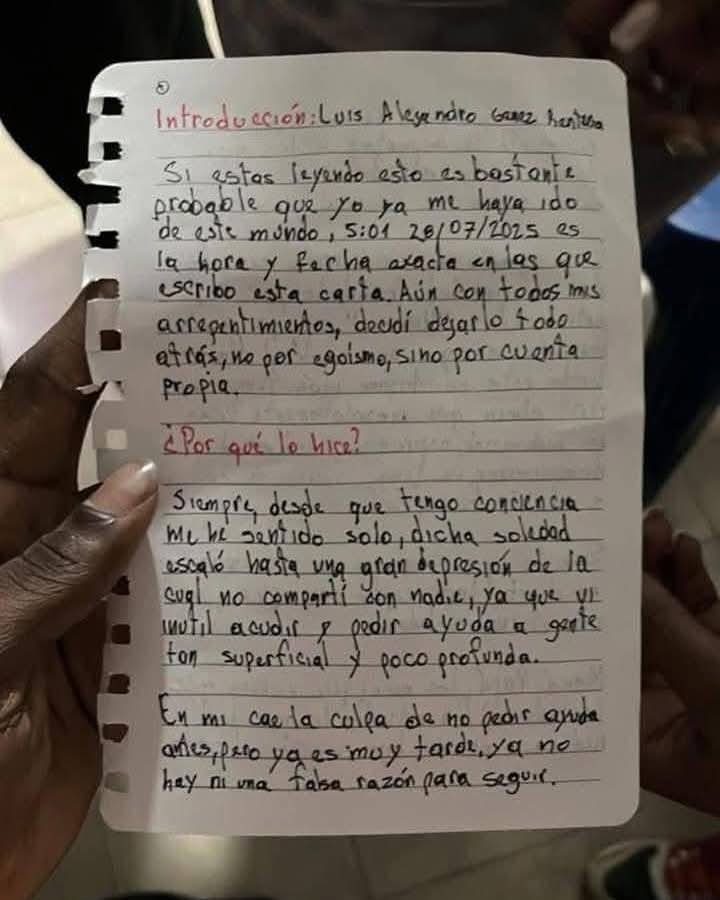 Introducción: Luis Alejandro
Si estas leyendo esto es bastante
probable que yo ya me haya ido
de este mundo, 5:01 28/07/2025 es
la hora y fecha exacta en las que
escribo esta carta. Aún con todos mis
arrepentimientos, decidí dejarlo todo
atrás, no por egoismo, sino por cuenta
propia.
¿Por qué lo hice?
Siempre, desde que tengo conciencia
me he sentido solo, dicha soledad
escaló hasta una gran depresión de la
cual no compartí con nadie, ya que vi
inutil acudir y pedir ayuda a gente
tan superficial y poco profunda.
En mi cae la culpa de no pedir ayuda
antes, pero ya es muy tarde, ya no
hay ni una falsa razón para seguir.